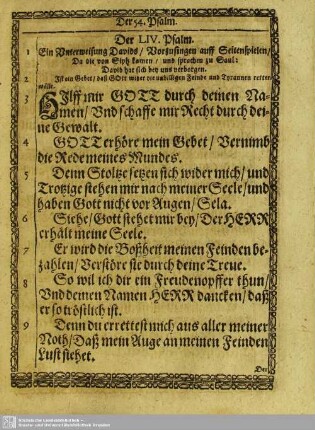 Der 54. Psalm.
Der LIV. Psalm.
1 Ein Unterweisung Davids / Vorzusingen auff Seitenspielen /
Da die von Siph kamen / und sprachen zu Saul:
David hat sich bey uns verborgen.
2 Ist ein Gebet / daß GOtt wider die unschligen Feinde und Tyrannen retten
wölle.
3 HIlff mir GOTT durch deinen Na-
men / Vnd schaffe mir Recht durch dei-
ne Gewalt.
4 GOTT erhöre mein Gebet / Vernimb
die Rede meines Mundes.
5 Denn Stoltze setzen sich wider mich / und
Trotzige stehen mir nach meiner Seele / und
haben Gott nicht vor Augen / Sela.
6 Siehe / Gott stehet mir bey / Der HERR
erhält meine Seele.
7 Er wird die Boßheit meinen Feinden be-
zahlen / Verstöre sie durch deine Treue.
8 So wil ich dir ein Freudenopffer thun /
Vnd deinem Namen HERR dancken / daß
er so tröstlich ist.
9 Denn du errettest mich aus aller meiner
Noth / Daß mein Auge an meinen Feinden
Lust siehet.
Der